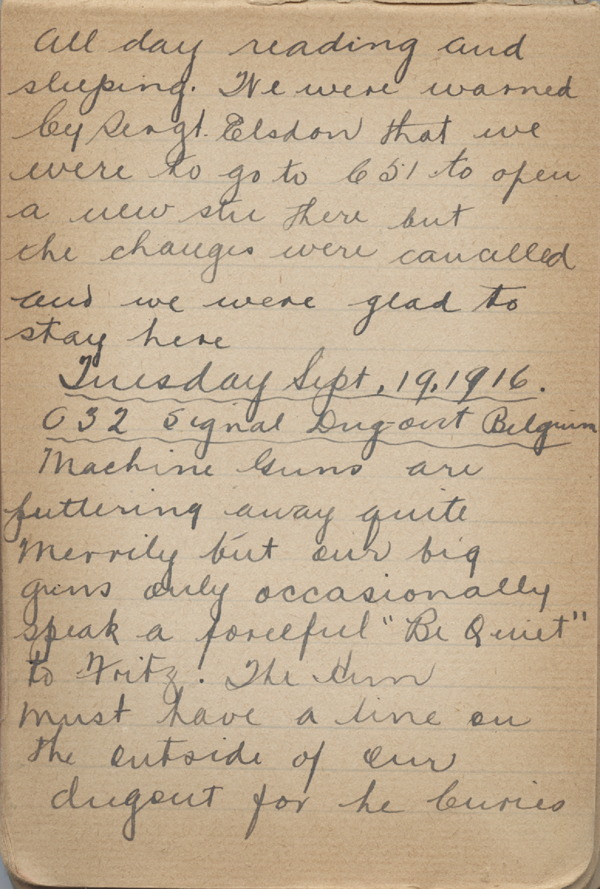 All day reading and
sleeping. We were warned
by Sergt. Elsdon that we
were to go to C 51 to open
a new stn there but
the changes were cancalled
and we were glad to
stay here
Tuesday Sept, 19, 1916.
O 32 Signal Dug-out Belgium
Machine Guns are
puttering away quite
merrily but our big
guns only occasionally
speak a forceful "Be Quiet"
to Fritz! The Hun
must have a line on
the outside of our
dugout for he buries